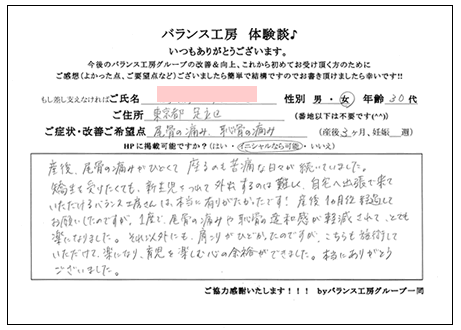 バランス工房 体験談♪
いつもありがとうございます。
今後のバランス工房グループの改善&向上、これから初めてお受け頂く方のために
ご感想(よかった点、ご要望点など)ございましたら簡単で結構ですのでお書き頂けましたら幸いです!!
もし差し支えなければご氏名 性別 男・女 年齢 30代
ご住所 東京都 足立区 (番地以下は不要です(^^))
ご症状・改善ご希望点 尾骨の痛み、恥骨の痛み (産後 3ヶ月、妊娠 週)
HPに掲載可能ですか?(はい・イニシャルなら可能・いいえ)
産後、尾骨の痛みがひどくて 座るのも苦痛な日々が続いていました。
矯正を受けたくても、新生児をつれて外出するのは難しく、自宅へ出張で来て
いただけるバランス工房さんは、本当に有りがたかったです! 産後1ヶ月位経過して
お願いしたのですが、1度で、尾骨の痛みや恥骨の違和感が軽減されて、とても
楽になりました。それ以外にも、肩こりがひどかったのですが、こちらも施術して
いただけて、楽になり、育児を楽しむ心の余裕ができました。本当にありがとう
ございました。
ご協力感謝いたします!!! byバランス工房グループ一同